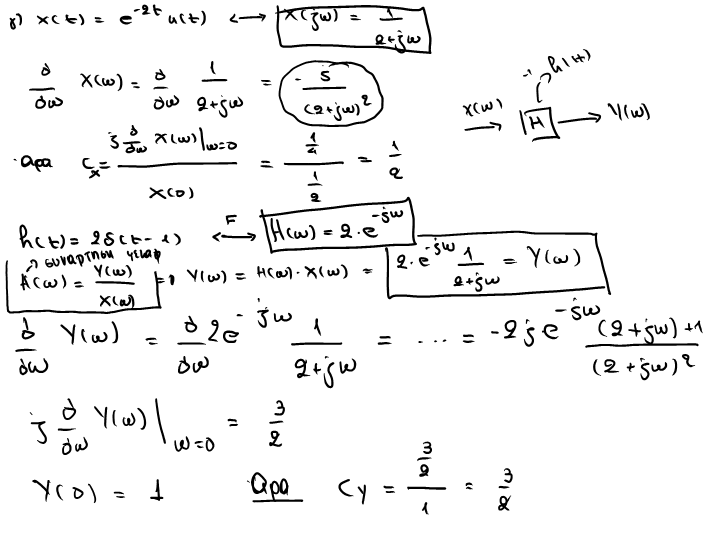 γ) x(t) = e^{-2t} u(t) ⟷ X(jω) = 1/(2+jω)
d/dω X(ω) = d/dω 1/(2+jω) = -j/(2+jω)^2
x(ω) → H → Y(ω) h(t)
·Άρα C_x = (j d/dω X(ω)|_{ω=0})/X(0) = (1/4)/(1/2) = 1/2
h(t) = 2δ(t-1) ⟷^F H(ω) = 2·e^{-jω}
→ συνάρτηση
H(ω) = Y(ω)/X(ω) ⇒ Y(ω) = H(ω)·X(ω) = 2·e^{-jω} 1/(2+jω) = Y(ω)
d/dω Y(ω) = d/dω 2e^{-jω} 1/(2+jω) = ... = -2je^{-jω} ((2+jω)+1)/(2+jω)^2
j d/dω Y(ω)|_{ω=0} = 3/2
Y(0) = 1 Άρα C_y = (3/2)/1 = 3/2